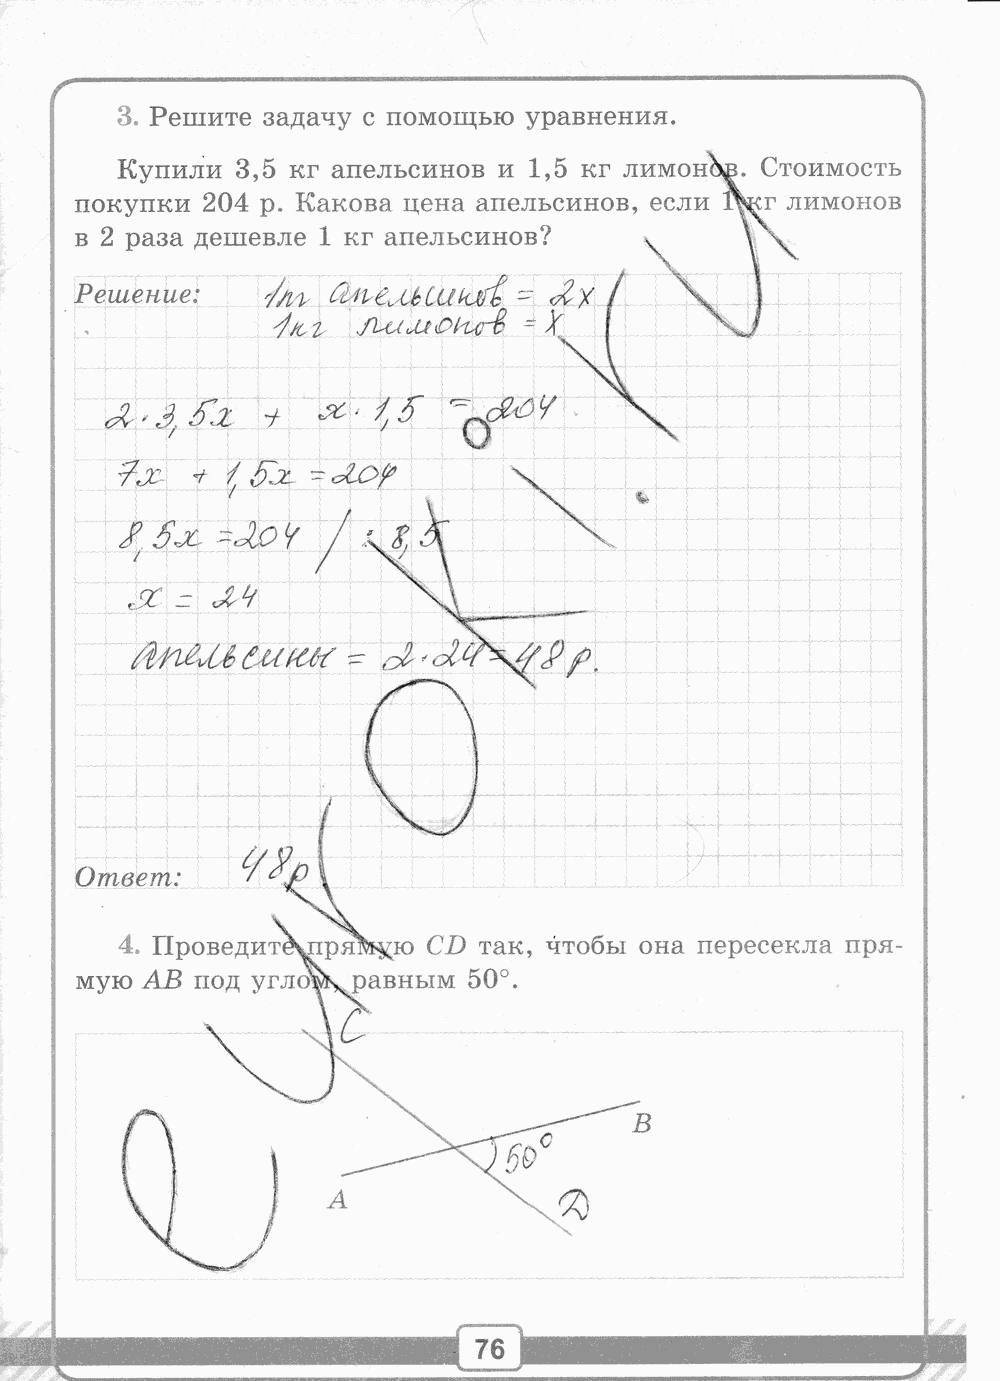 3. Решите задачу с помощью уравнения.
Купили 3,5 кг апельсинов и 1,5 кг лимонов. Стоимость
покупки 204 р. Какова цена апельсинов, если 1 кг лимонов
в 2 раза дешевле 1 кг апельсинов?
Решение: 1кг апельсинов = 2x
1кг лимонов = x
2·3,5x + x·1,5 = 204
7x + 1,5x = 204
8,5x = 204 / : 8,5
x = 24
апельсины = 2·24 = 48 р.
Ответ: 48р
4. Проведите прямую CD так, чтобы она пересекла пря-
мую AB под углом, равным 50°.
C
B
50°
A
D
76
eurOKi.ru